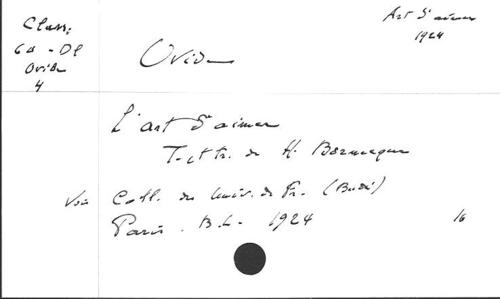 Class:
6d - Dl
Ovide
4
Art d'aimer
1924
Ovide
L'art d'aimer
T. et tr. de H. Bornecque
Voir Coll. des Univ. de Fr. (Budé)
Paris. B.L. 1924 16